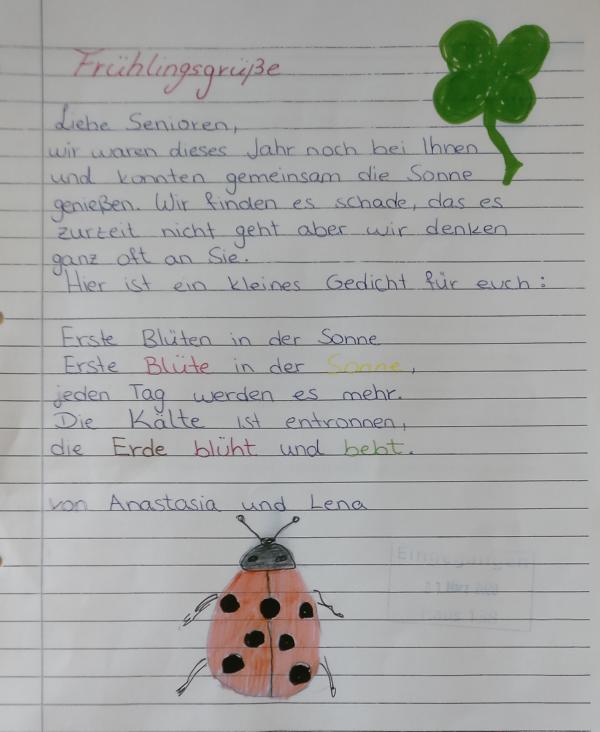 Frühlingsgrüße
Liebe Senioren,
wir waren dieses Jahr noch bei Ihnen
und konnten gemeinsam die Sonne
genießen. Wir finden es schade, das es
zurzeit nicht geht aber wir denken
ganz oft an Sie.
Hier ist ein kleines Gedicht für euch:
Erste Blüten in der Sonne
Erste Blüte in der Sonne,
jeden Tag werden es mehr.
Die Kälte ist entronnen,
die Erde blüht und bebt.
von Anastasia und Lena
Eingegangen